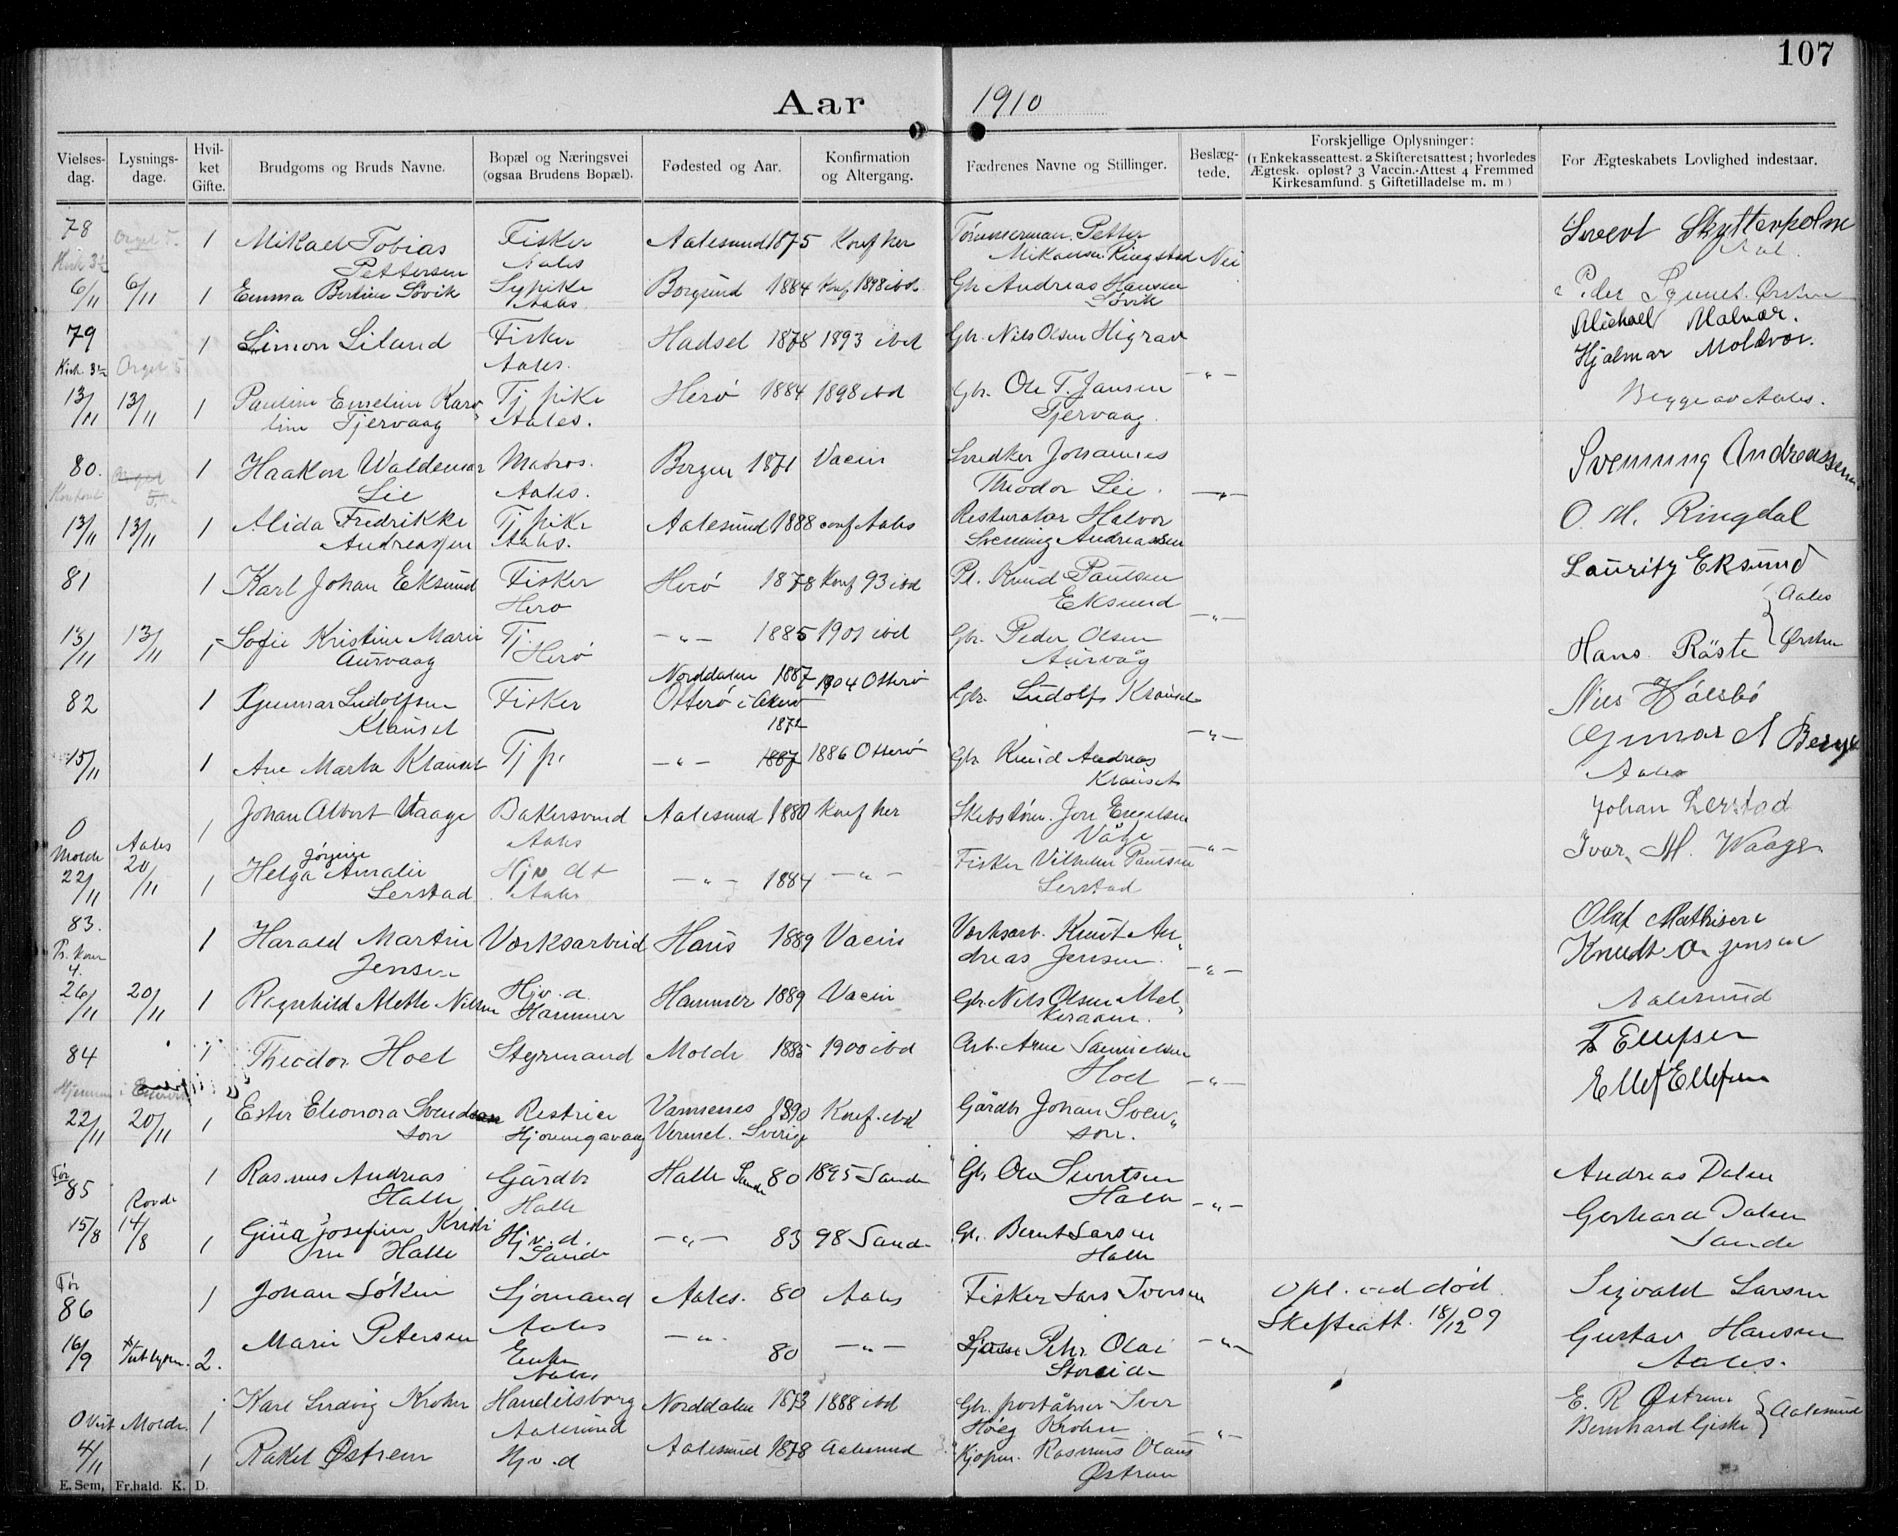 107
Aar 1910
Vielses-dag. Lysnings-dage. Hvil-ket Gifte. Brudgoms og Bruds Navne. Bopæl og Næringsvei (ogsaa Brudens Bopæl). Fødested og Aar. Konfirmation og Altergang. Fædrenes Navne og Stillinger. Beslæg-tede. Forskjellige Oplysninger: (1 Enkekasseattest. 2 Skifteretsattest; hvorledes Ægtesk. opløst? 3 Vaccin.-Attest 4 Fremmed Kirkesamfund. 5 Giftetilladelse m. m) For Ægteskabets Lovlighed indestaar.
78 Orgel 5. 1 Mikael Tobias Fisker Aalesund 1875 Konf her Tømmerman Petter
Pettersen Aales Mikansen Ringstad Nei
6/11 6/11 1 Emma Bertine Søvik Sypike Borgund 1884 Konf 1898 ibd. Gbr Andreas Hansen
Aales. Søvik
79 1 Simon Siland Fisker Hadsel 1878 1893 ibd Gbr. Nils Olsen Higrav Michael Malvær.
Orgel 5 Aales. -"- Hjalmar Moldvær.
13/11 13/11 1 Pauline Emeline Karo Tj pike Herø 1884 1898 ibd Gbr. Ole T. Jansen Begge av Aales.
line Tjervaag Aales. Tjervaag.
80. 1 Haakon Waldemar Matros. Bergen 1871 Vacin Snedker Johannes Svenning Andreassen
Lie Aales. Theodor Lie. -"-
13/11 13/11 1 Alida Fredrikke Tj pike Aalesund 1888 conf Aales Resturatør Halvor O. M. Ringdal
Andreassen Aales. Svenning Andreassen
81 1 Karl Johan Eksund Fisker Herø 1878 Konf 93 ibd Pl. Knud Paulsen Lauritz Eksund
Herø Eksund -"- Aales
13/11 13/11 1 Sofie Kristine Marie Tj. -"- 1885 1901 ibd Gbr. Peder Olsen Hans Røste Ørsten
Aurvaag Herø Aurvåg
Norddalen 1887 1904 Otterø
82 1 Gunnar Ludolfsen Fisker Otterø i Akerø Gbr. Ludolf Klauset
Klauset 1872 -"- Gunnar A Berge
15/11 1 Ane Marta Klauset Tj pi -"- 1887 1886 Otterø Gbr Knud Andreas Aales
Klauset
0 1 Johan Albert Vaage Bakersvend Aalesund 1880 Konf her Skibstøm. Jon Engelsen Johan Lerstad
Molde Aales Aales Våge -"- Ivar M. Waage
22/11 20/11 1 Helga Jørgine Amalie Hjv dt -"- 1884 -"- Fisker Vilhelm Paulsen
Lerstad Aales Lerstad
83. 1 Harald Martin Værksarbeid Haus 1889 Vacin Værksarb. Knut An- Olaf Mathisen
4. Jensen dreas Jensen. -"- Knudt A Jensen
26/11 20/11 1 Ragnhild Mette Nilsen Hjv. d. Hammer 1889 Vacin Gbr Nils Olsen Mel- Aalesund
Hammer keraaen.
84 1 Theodor Hoel Styrmand Molde 1885 1900 ibd Arb. Arne Samuelsen Ellefsen
Hoel -"- Ellef Ellefsen
22/11 20/11 1 Ester Eleonora Svend Restrice 1890 Konf. ibd Gårdbr Johan Sven-
son Hjørungavaag Vermel. Sverige son.
Før 85 1 Rasmus Andreas Gårdbr Halle Sande 80 1895 Sande Gbr Ole Sivertsen Andreas Dalen
Rovde Halle Halle Halle -"-
15/8 14/8 1 Gina Josefine Kristi Hjv. d. -"- 83 98 Sande Gbr. Bernt Larsen Gerhard Dalen
ne Halle Sande Halle Sande
Før 86 1 Johan Løkin Sjømand Aales. 80 Aales Fisker Lars Iversen Opl. ved død. Sigvald Larsen
Aales Skifteatt. 18/12 09
16/9 2. Marie Petersen Enke -"- 80 -"- Petr Olai -"- Gustav Hansen
Aales Storeide Aales.
1 Karl Ludvig Krohn Handelsborg Norddalen 1873 1888 ibd Gbr. poståbner Iver E. R Østrem
0 Molde. Aalesund Høeg Krohn -"- Bernhard Giske Aalesund
4/11 1 Rakel Østrem Hjv. d Aalesund 1878 Aalesund Kjøpm. Rasmus Olaus
Østrem
E. Sem, Fr.hald. K. D.